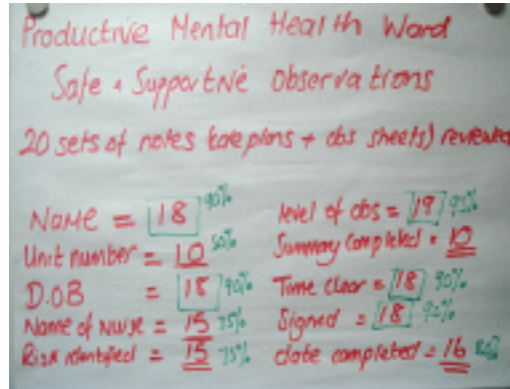 Productive Mental Health Ward
Safe + Supportive Observations
20 sets of notes (care plans + obs sheets) reviewed
Name = 18 90%
Unit number = 10 50%
D.OB = 18 90%
Name of nurse = 15 75%
Risk identified = 15 75%
level of obs = 19 95%
Summary completed = 10
Time clear = 18 90%
Signed = 18 90%
date completed = 16 80%